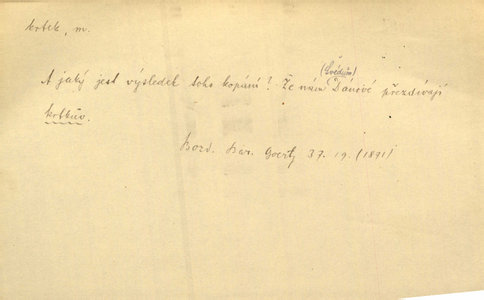 krtek, m.
A jaký jest výsledek toho kopání? Že nám (Švédům) Dánové přezdívají
krtkův.
Bozd. Bar. Goertz 37. 19. (1891)